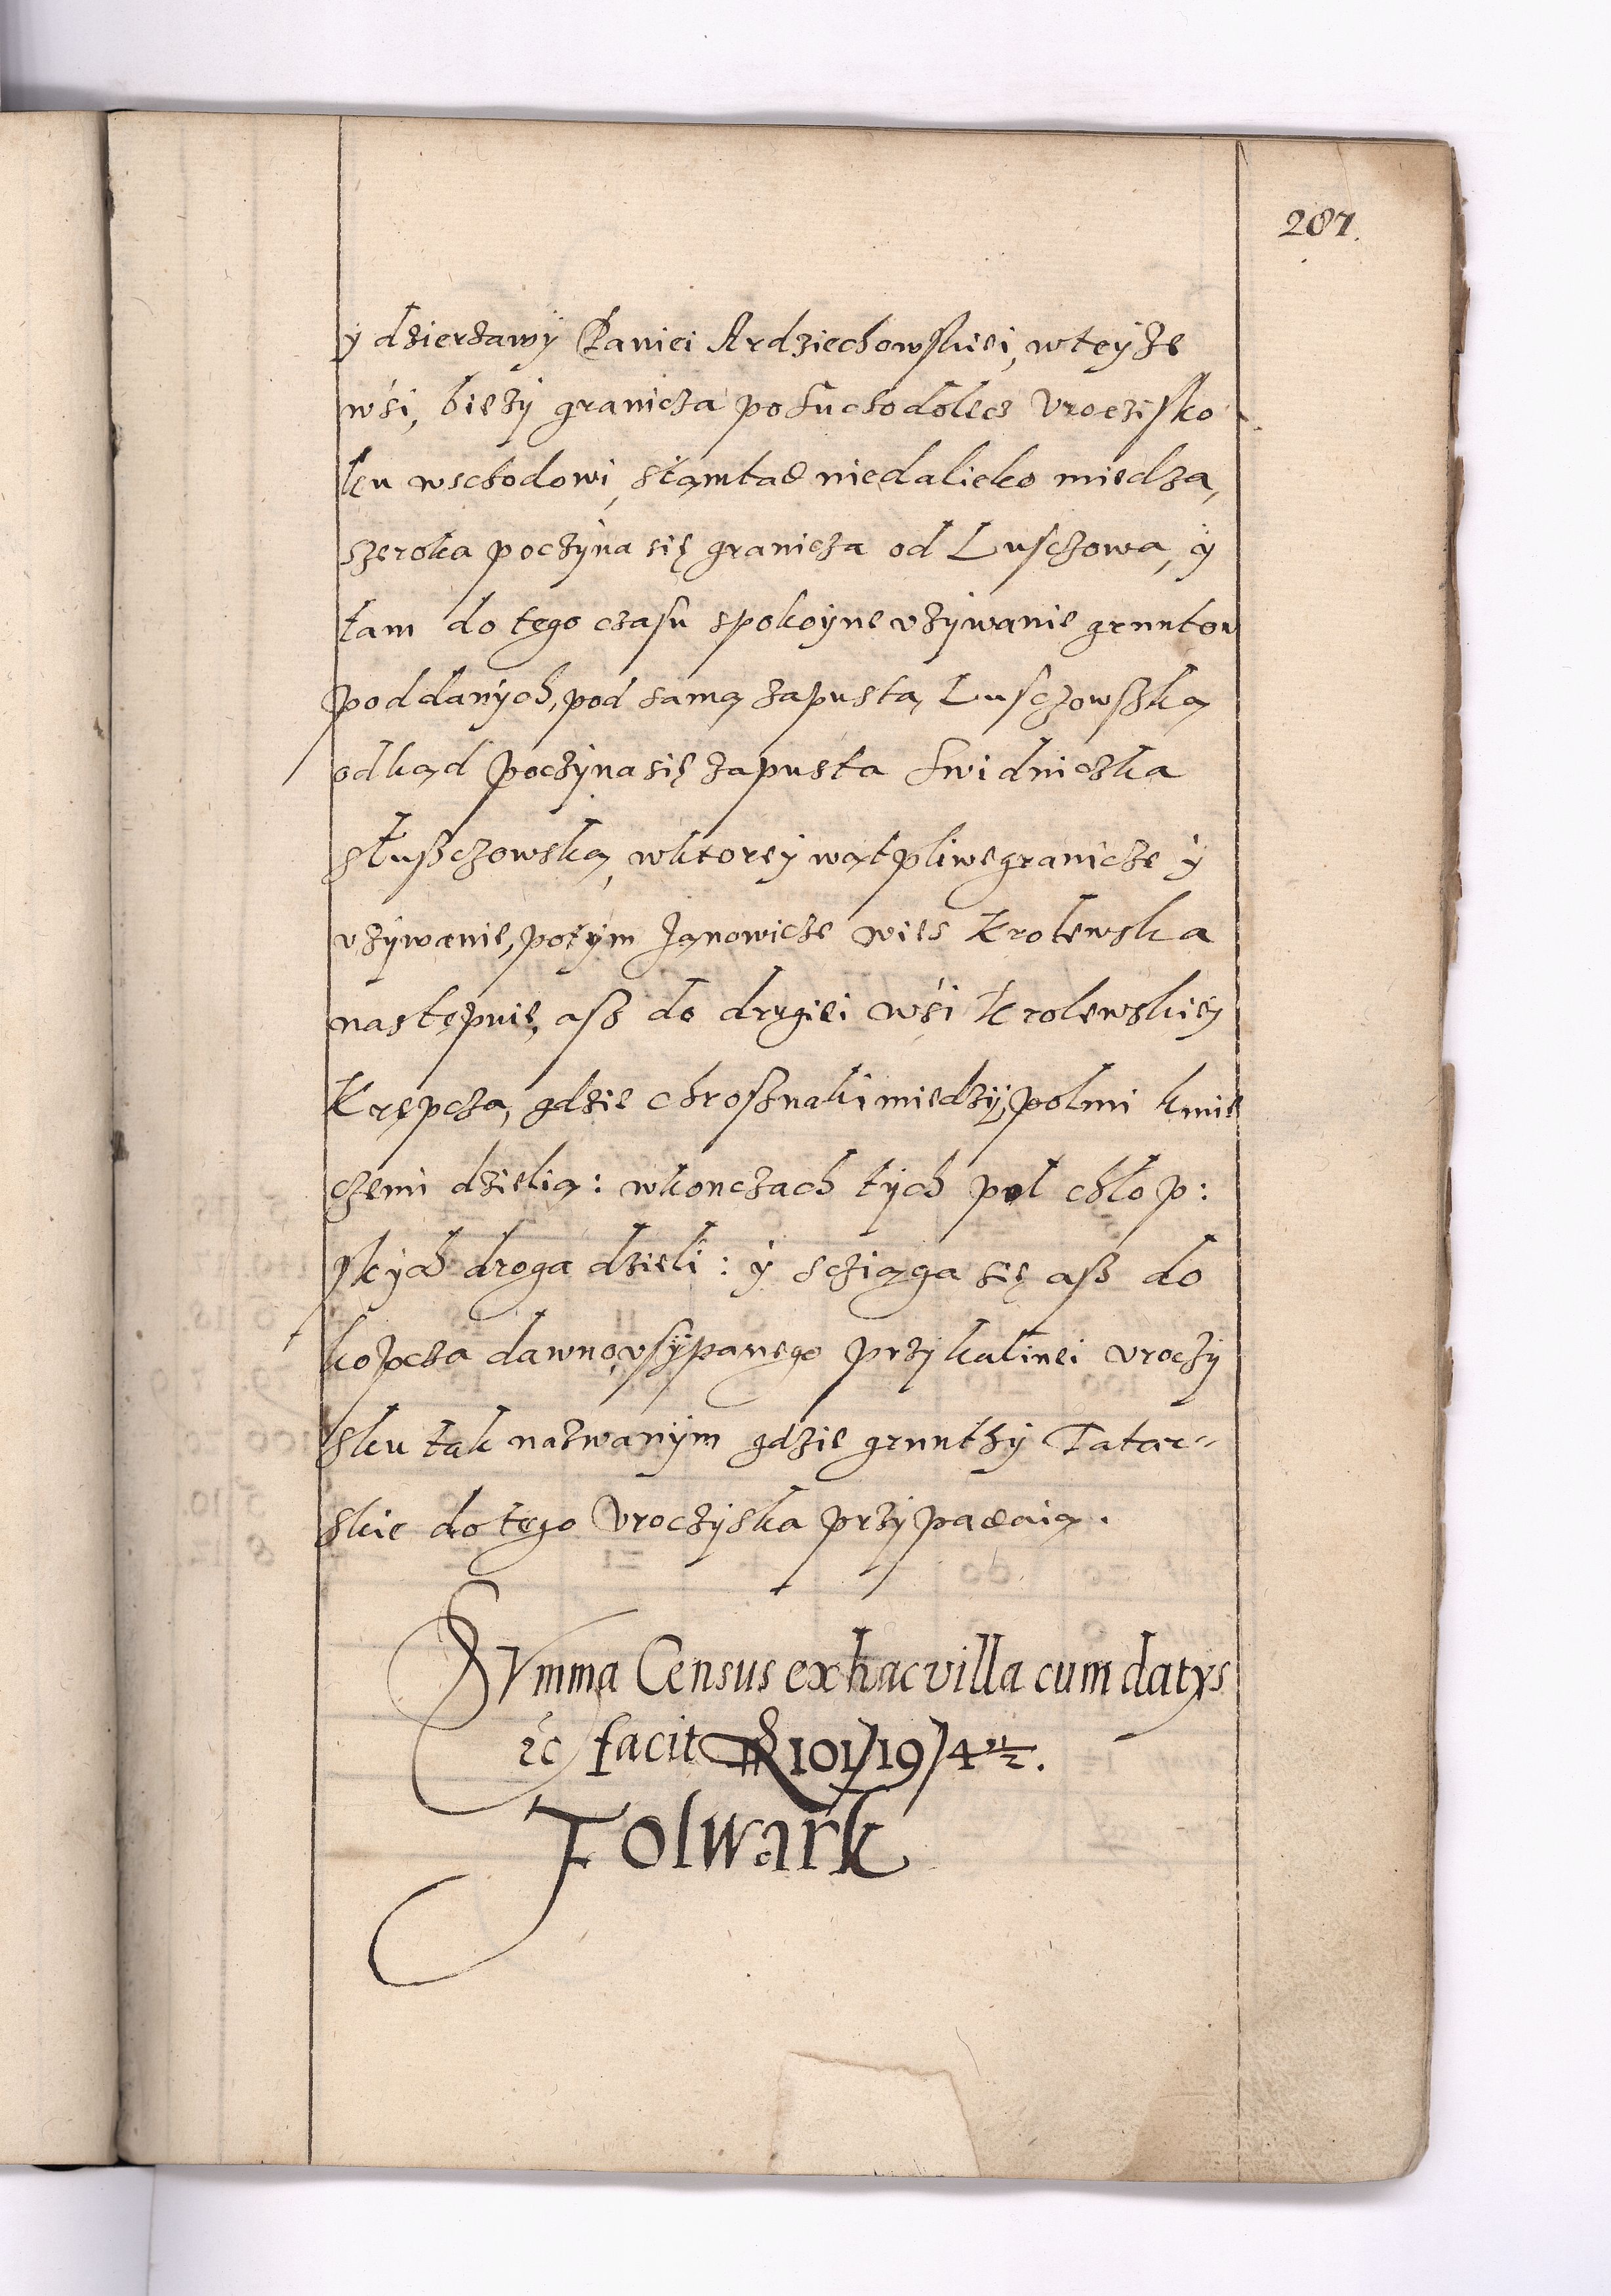 287.
ÿ dzierzawÿ Paniei Ardziechowskiei, wteÿze
wśi, bieżÿ granicza po Suchodolecz Vrocżisko
ku wschodowi, stąmtad niedalieko miedzą,
szeroka poczÿna się granicza od Lusczowa, ÿ
tam do tego czasu spokoÿne vżÿwanie gruntow
poddanÿch, pod samą zapustą Lusczowską
odkąd poczÿna się zapusta Swidniczka
słußczowską, wktoreÿ wątpliwe granicze ÿ
vżÿwanie, potÿm Janowicze wies Krolewska
nastepuie, aß do drugiei wśi Krolewskieÿ
Krępcza, gdzie chrosznaki miedzÿ polmi kmie
czemi dzielią: wkonczach tÿch pol chłop:
skÿch droga dzieli: ÿ scziąga się aß do
kopcza dawno vsÿpanego przÿ kalinei vroczÿ
sku tak nazwanÿm gdzie grunthÿ Tatar=
skie do tego Vroczÿska przÿpadaią.
SVmma Census ex hac villa cum datys
&c facit 101/19/4 ½.
Folwark